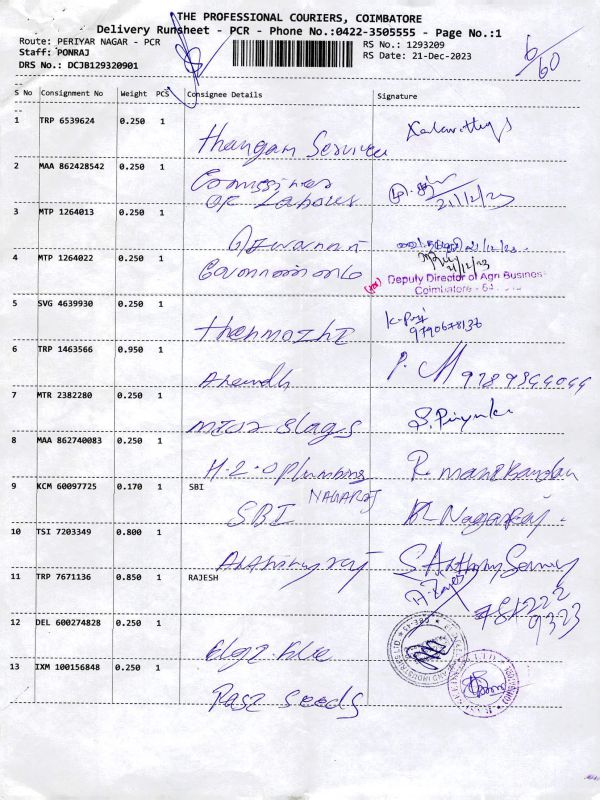 THE PROFESSIONAL COURIERS, COIMBATORE
Delivery Runsheet - PCR - Phone No.:0422-3505555 - Page No.:1
Route: PERIYAR NAGAR - PCR
Staff: PONRAJ
DRS No.: DCJB129320901
RS No.: 1293209
RS Date: 21-Dec-2023
6/60
S No Consignment No Weight PCS Consignee Details Signature
1 TRP 6539624 0.250 1 Thangam Services
2 MAA 862428542 0.250 1 Commissiner
OF Labours 21/12/23
3 MTP 1264013 0.250 1 21/12/23
4 MTP 1264022 0.250 1 21/12/23
Deputy Director of Agri Business
Coimbatore - 64
5 SVG 4639930 0.250 1 Thenmozhi 9790678136
6 TRP 1463566 0.950 1 P. 9789344044
7 MTR 2382280 0.250 1 slags S. Priyanka
8 MAA 862740083 0.250 1 H.2.O Plumbing R. manikandan
9 KCM 60097725 0.170 1 SBI NAGARAJ
SBI Nagaraj
10 TSI 7203349 0.800 1 Anthonyraj S. Anthony Samy
11 TRP 7671136 0.850 1 RAJESH A. Rajesh
781222
9323
12 DEL 600274828 0.250 1 Blue
13 IXM 100156848 0.250 1 Rasi seeds